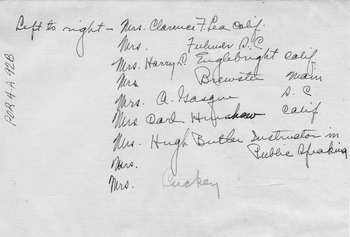 Left to right - Mrs. Clarence F. Lea Calif.
Mrs. Fulmer S.C
Mrs. Harry L. Englebright Calif
Mrs Brewster Main
Mrs. A. Gasque S.C
Mrs Carl Hinshaw Calif
Mrs. Hugh Butler Instructor in
Public Speaking
Mrs.
Mrs. Luckey
POR A-A 92B